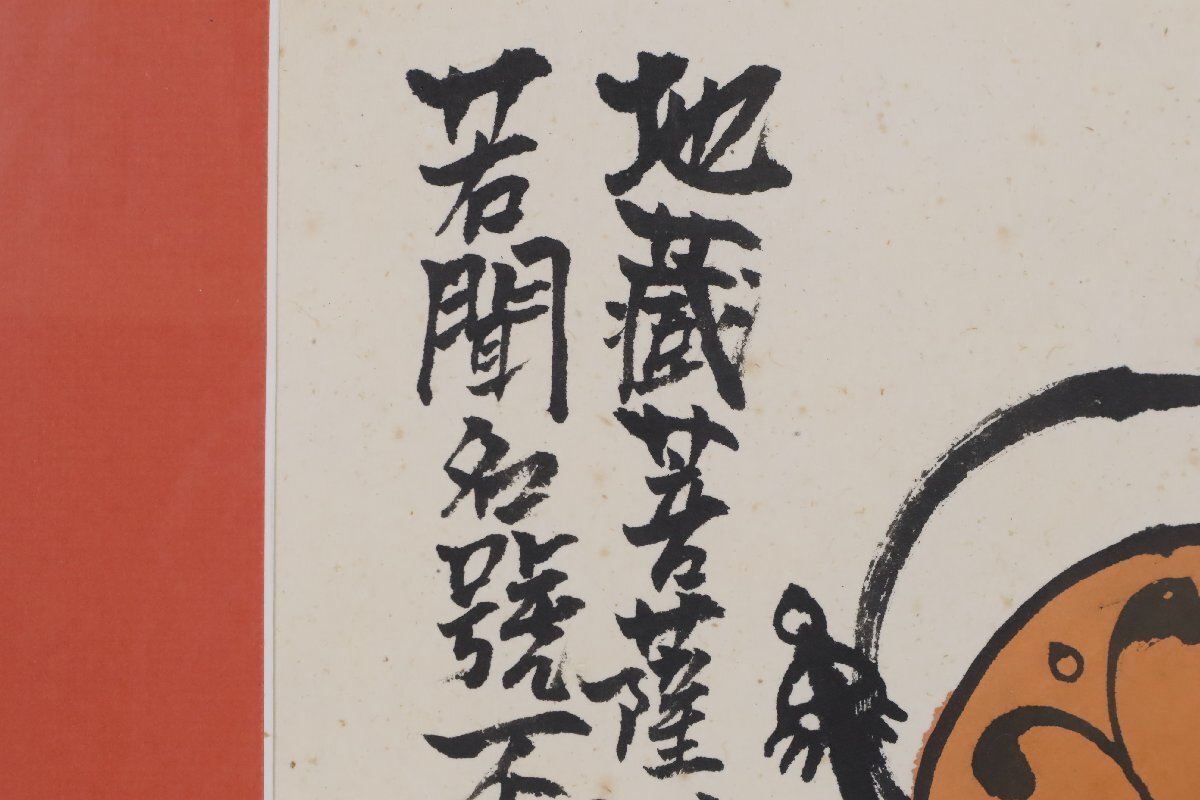 地藏菩薩
若聞名號不